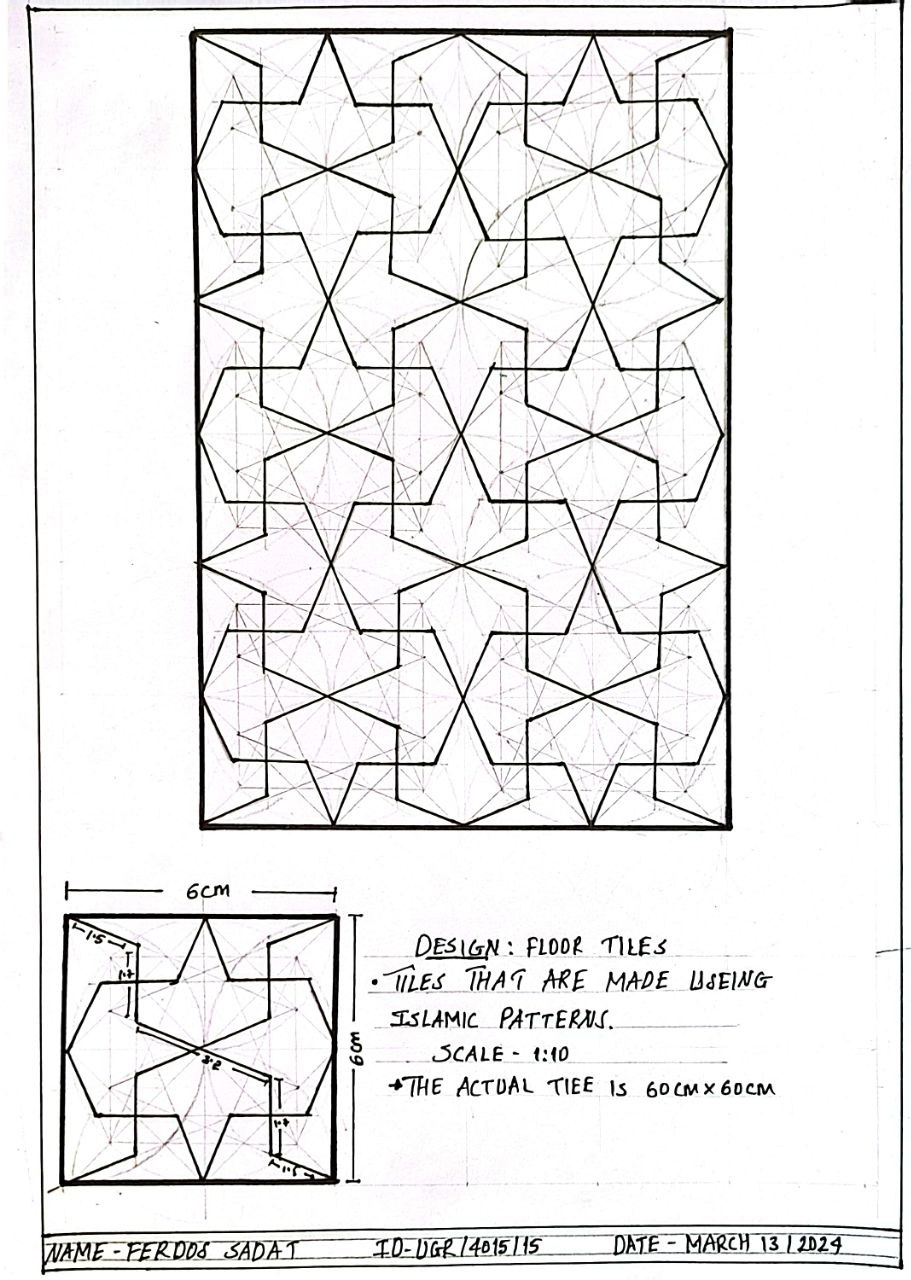 6cm
1.5
1.7
3.2
1.7
1.5
6cm
DESIGN: FLOOR TILES
• TILES THAT ARE MADE USEING
ISLAMIC PATTERNS.
SCALE - 1:10
→THE ACTUAL TIEE IS 60CM×60CM
NAME - FERDOS SADAT ID-UGR/4015/15 DATE - MARCH 13/2024